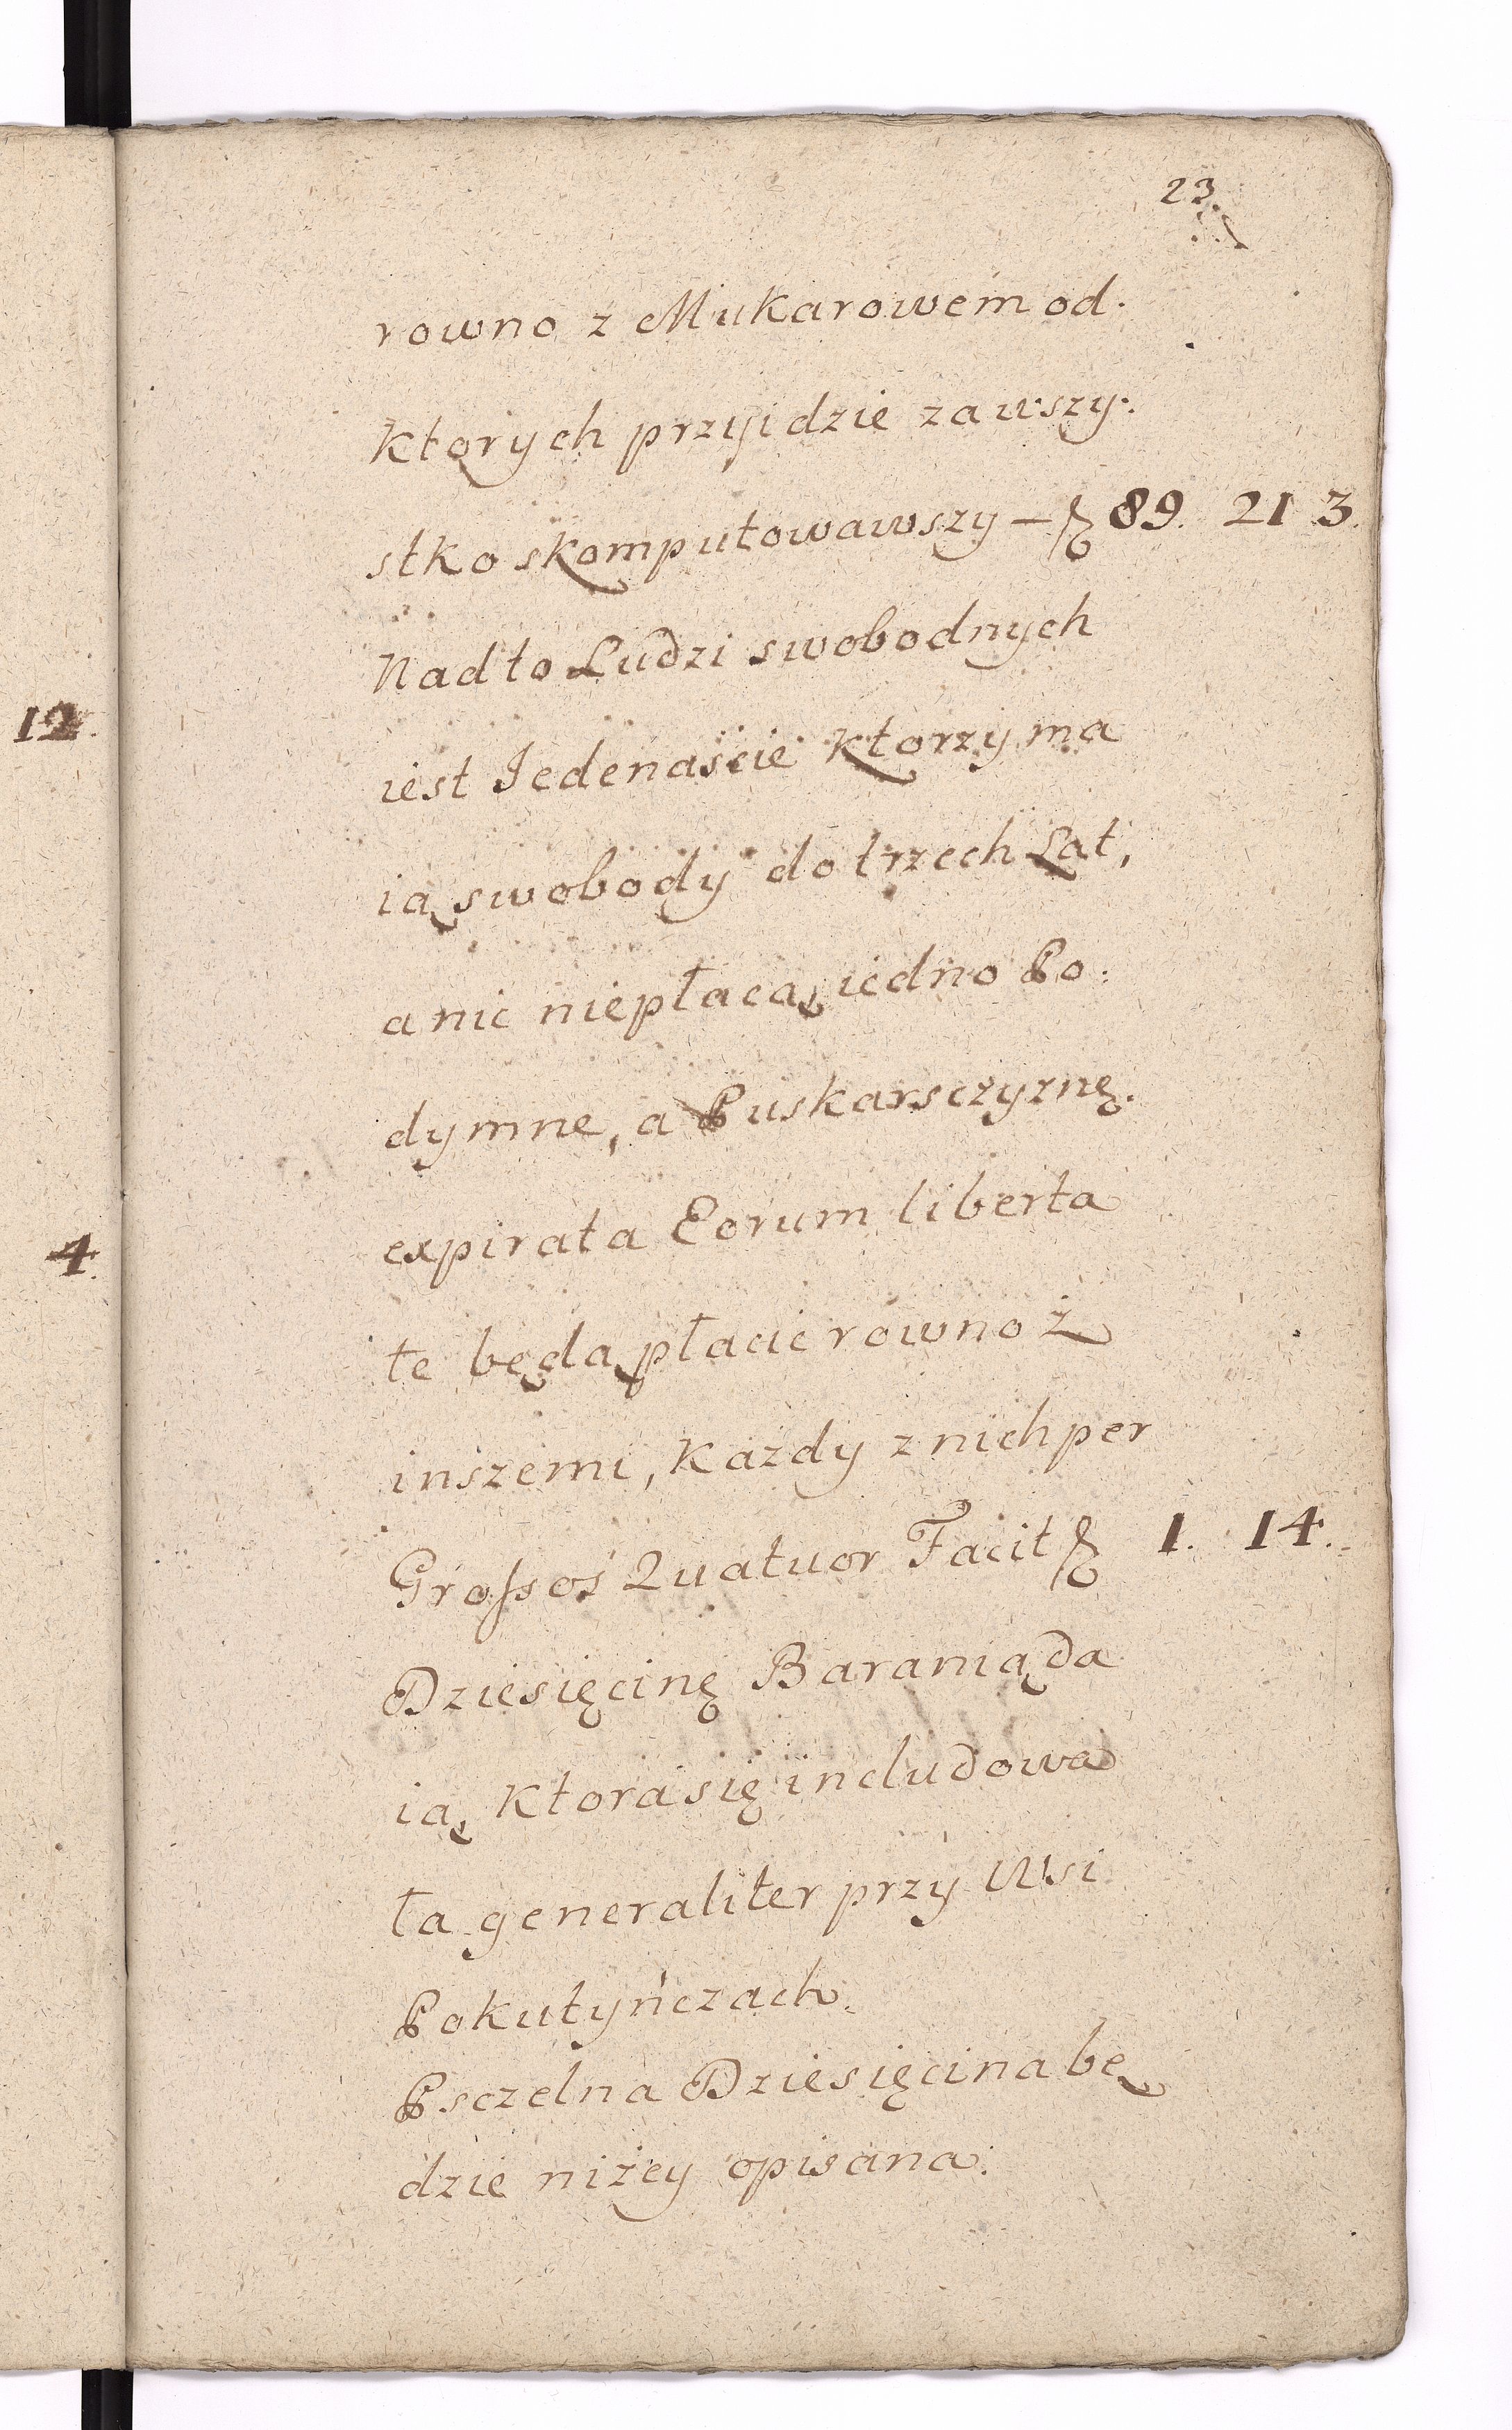 23.
rowno z Mukarowem od.
Ktorych przyidzie zawszy.
stko skomputowawszy – 89. 21 3.
Nadto Ludzi swobodnych
12.
iest Iedenascie Ktorzy ma
ią swobody do trzech Lat,
a nic niepłacą iedno Po:
dymne, a Puskarsczyznę.
expirata Eorum liberta
4.
te będą płacic rowno z
inszemi, Kazdy z nich per
Grossos Quatuor Facit 1. 14.
Dziesięcinę Baranią da
ią Ktora się includowa
ła generaliter przy Wsi
Pokutyńczach.
Psczelna Dziesięcina bę
dzie niżey opisana.